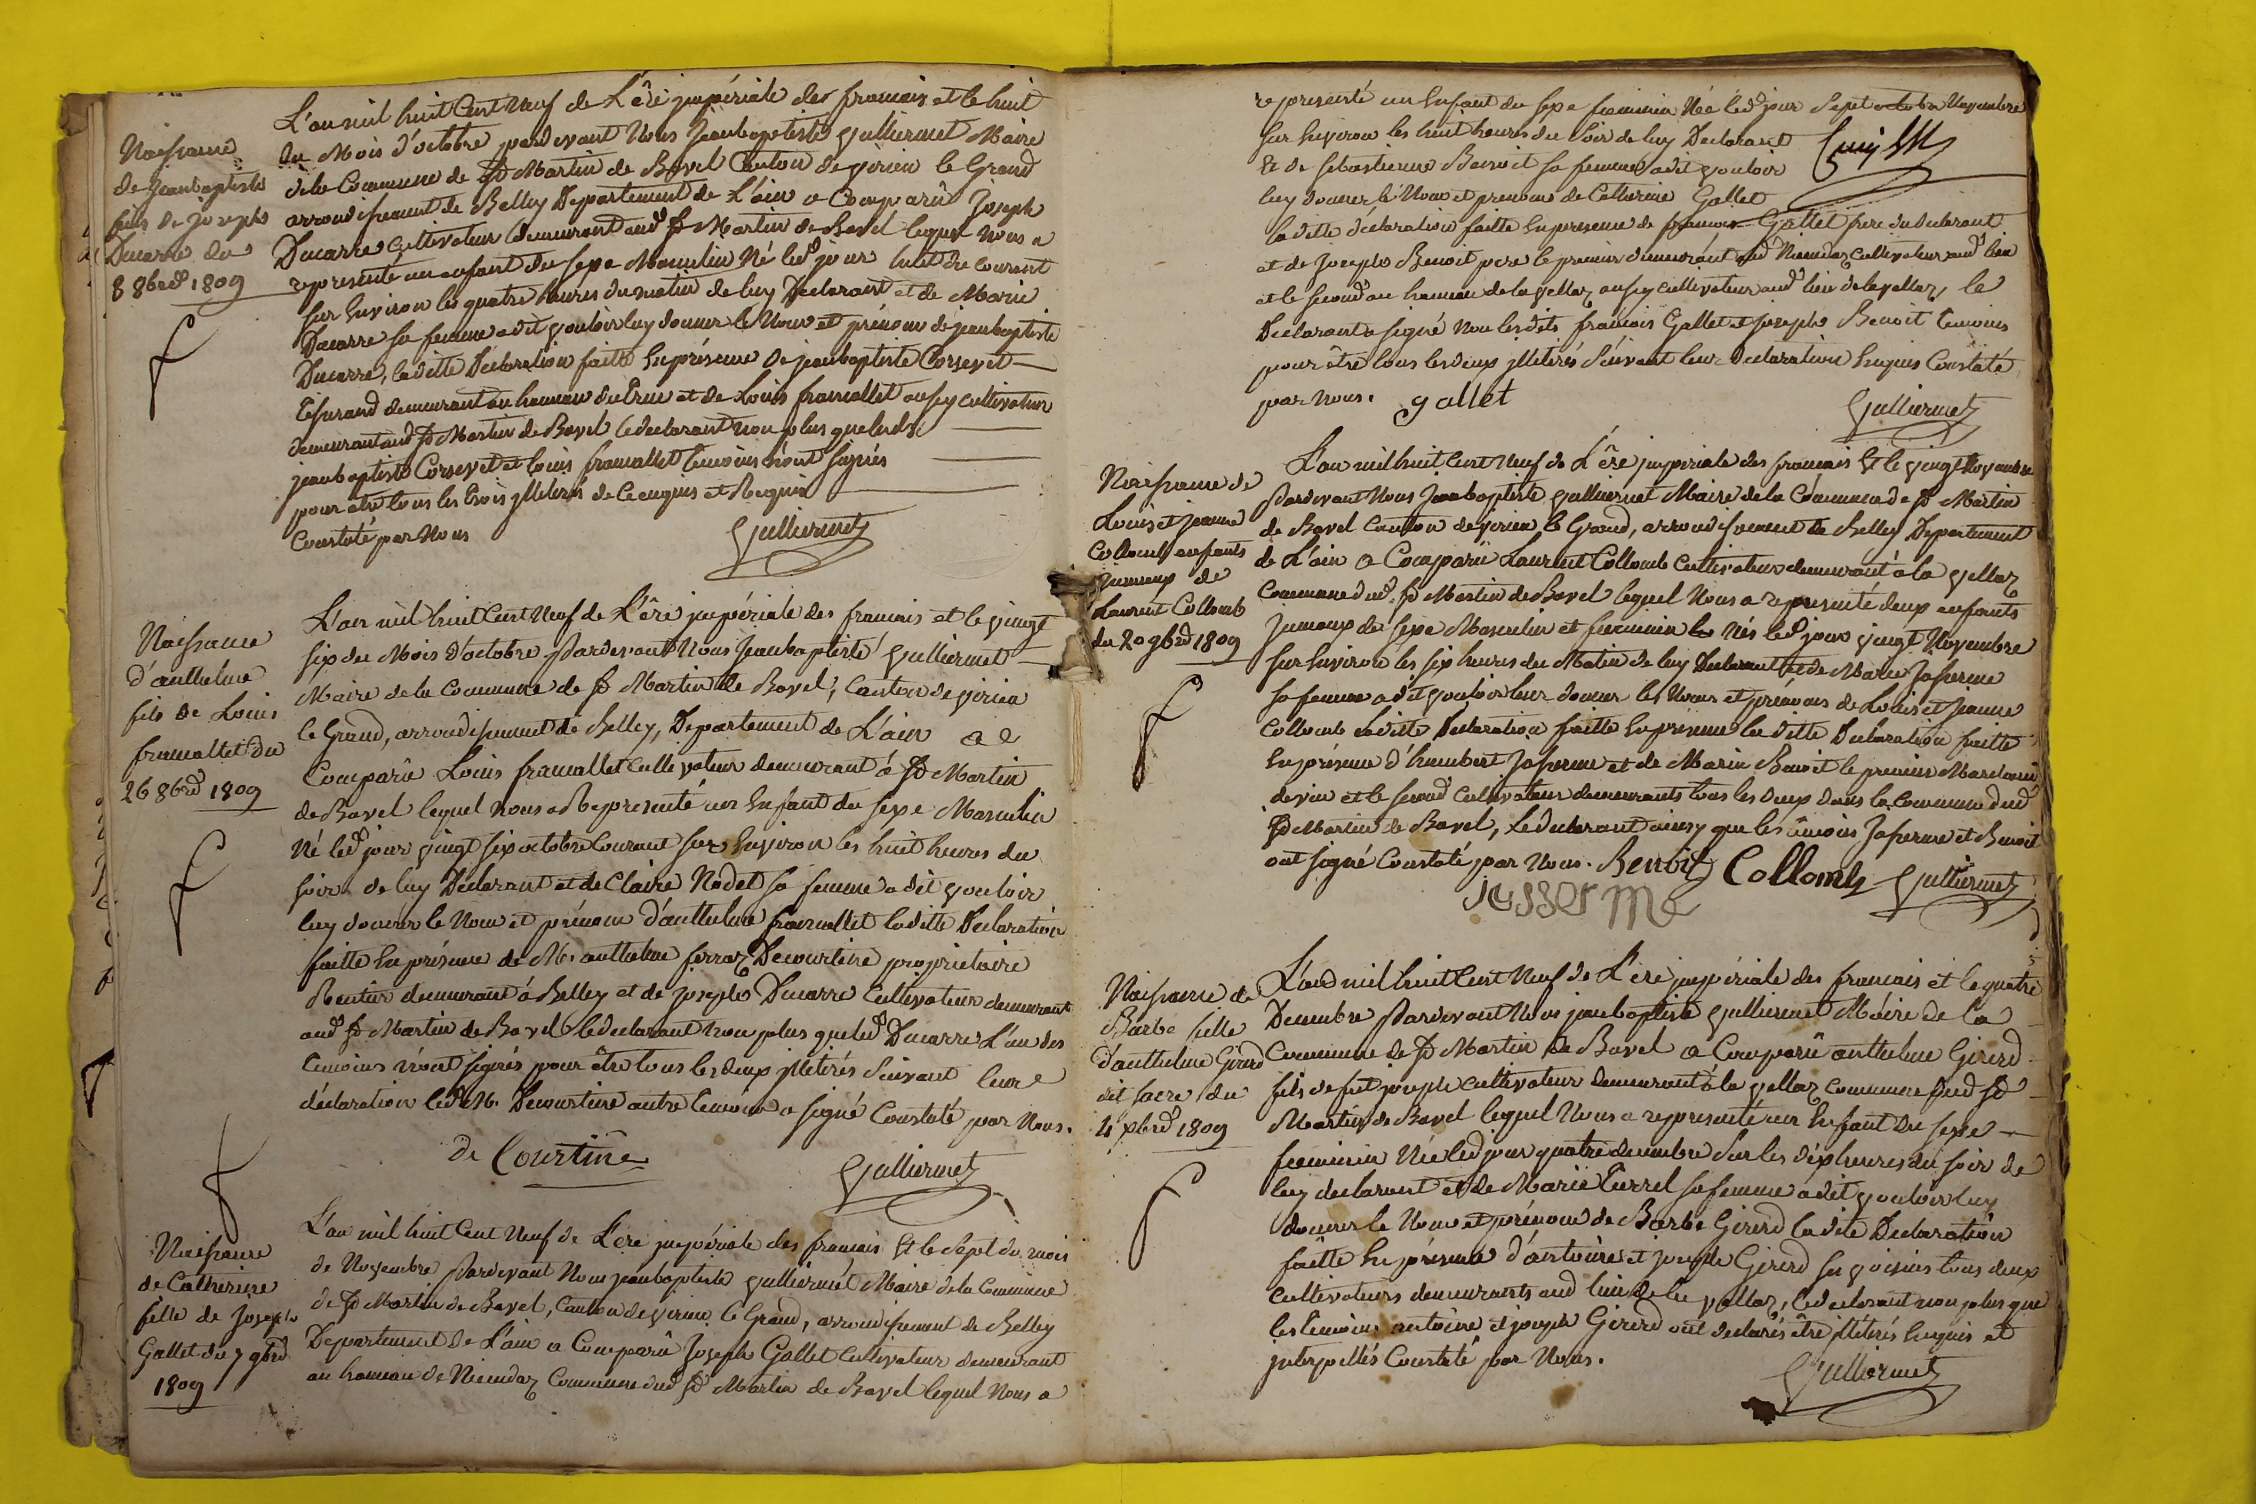 Naissance
de jeanbaptiste
fils de joseph
Ducarre du
8 8bre 1809
L'an mil huit Cent Neuf de L'ère jmpériale des francais et le huit
du Mois d'octobre pardevant Nous Jeanbaptiste Gulliermet Maire
dela Commune de St Martin de Bavel Canton de virieu le Grand
arrondissement de Belley Departement de L'ain a Comparû Joseph
Ducarre Cultivateur demeurant aud St Martin de Bavel lequel Nous a
representé un enfant du sexe Masculin Né led jour huit du Courant
sur Environ les quatre heures du matin de luy Declarant et de Marie
Ducarre sa femme a dit vouloir luy donner le Nom et prénom de jeanbaptiste
Ducarre, laditte Déclaration faitte En présence de jeanbaptiste Corsevet
Tisserand demeurant au hameau du et de Louis francallet aussy cultivateur
demeurant aud St Martin de Bavel le declarant non plus que lesds
jeanbaptiste Corsevet et Louis francallet temoins n'ont signés
pour etre tous les trois jlletirés de ce enquis et Requis
Constaté par Nous
Gulliermet
Naissance
d'anthelme
fils de Louis
francallet du
26 8bre 1809
L'an mil huit Cent Neuf de L'ère jmpériale des francais et le vingt
six du Mois d'octobre Pardevant Nous Jeanbaptiste Gulliermet
Maire dela Commune de St Martin de Bavel, Canton de virieu
le Grand, arrondissement de Belley, Departement de L'ain a
Comparû Louis francallet Cultivateur demeurant à St Martin
de Bavel lequel nous a Representé un Enfant du sexe Masculin
Né led jour vingt six octobre Courant sur Environ les huit heures du
soir de luy Déclarant et de Claire Nodet sa femme a dit vouloir
luy donner le Nom et prénom d'anthelme francallet laditte Déclaration
faitte En présence de Mr anthelme ferraz Decourtine proprietaire
Rentier demeurant à Belley et de Joseph Ducarre Cultivateur demeurant
aud St Martin de Bavel le declarant non plus que led Ducarre L'un des
temoins n'ont signés pour être tous les deux jlletirés Suivant leur
déclaration led Mr Decourtine autre temoin a signé Constaté par Nous.
de Courtine
Gulliermet
Naissance
de Catherine
fille de Joseph
Gallet du 7 9bre
1809
L'an mil huit Cent Neuf de L'ere jmpériale des francais Et le Sept du mois
de Novembre Pardevant Nous jeanbaptiste Gulliermet Maire dela Commune
de St Martin de Bavel, Canton de virieu le Grand, arrondissement de Belley
Departement de L'ain a Comparû Joseph Gallet Cultivateur demeurant
au hameau de Commune dud St Martin de Bavel lequel Nous a
representé un Enfant du sexe feminin Née led jour Sept octobre Novembre
sur Environ les huit heures du soir de luy Declarant
Et de sebastienne Benoit sa femme a dit vouloir
luy donner le Nom et prenom de Catherine Gallet
laditte déclaration faitte En presence de francois Gallet frere du declarant
et de Joseph Benoit pere le premier demeurant aud Cultivateur aud lieu
et le second au hameau de la vellaz aussy cultivateur aud lieu de la vellaz, le
Declarant a signé Non lesdits francois Gallet et joseph Benoit temoins
pour être tous les deux jlletirés Suivant leur declaration Enquis Constaté
par Nous. gallet
Gulliermet
Naissance de
Louis et jeanne
Collomb enfants
jumeaux de
Laurent Collomb
du 20 9bre 1809
L'an mil huit Cent Neuf de L'ère jmperiale des francais Et le vingt Novembre
Pardevant Nous Jeanbaptiste Gulliermet Maire dela Commune de St Martin
de Bavel Canton de virieu le Grand, arrondissement de Belley Departement
de L'ain a Comparû Laurent Collomb Cultivateur demeurant à la vellaz
Commune dud. St Martin de Bavel lequel Nous a representé deux enfants
jumeaux de sexe Masculin et feminin Nés led jour vingt Novembre
sur Environ les six heures du Matin de luy Declarant et de Marie Jasserme
sa femme a dit vouloir leur donner les Noms et prénoms de Louis et jeanne
Collomb laditte Declaration faitte En presence laditte Declaration faitte
En présence d'humbert Jasserme et de Marin Benoit le premier Marchand
de vin et le second Cultivateur demeurants tous les deux dans la Commune dud
St Martin de Bavel, Le declarant ainsy que les temoins Jasserme et Benoit
ont signé Constaté par Nous. Benoit Collomb Gulliermet
jasserme
Naissance de
Barbe fille
d'anthelme Girerd
dit sacre du
4 xbre 1809
L'an mil huit Cent Neuf de L'ère jmpériale des francais et le quatre
Decembre Pardevant Nous jeanbaptiste Gulliermet Maire de la
Commune de St Martin de Bavel a Comparû anthelme Girerd
fils de fut joseph cultivateur demeurant à la vellaz commune dud St
Martin de Bavel lequel Nous a representé un Enfant du sexe
feminin Née led jour quatre decembre Sur les dix heures du soir de
luy declarant et de Marie Turrel sa femme a dit vouloir luy
donner le Nom et prénom de Barbe Girerd ladite Declaration
faitte En présence d'antoine et joseph Girerd ses voisins tous deux
cultivateurs demeurants aud lieu de la vellaz, le declarant non plus que
les temoins antoine et joseph Girerd ont declarés être jlletirés Enquis et
jnterpellés Constaté par Nous.
Gulliermet